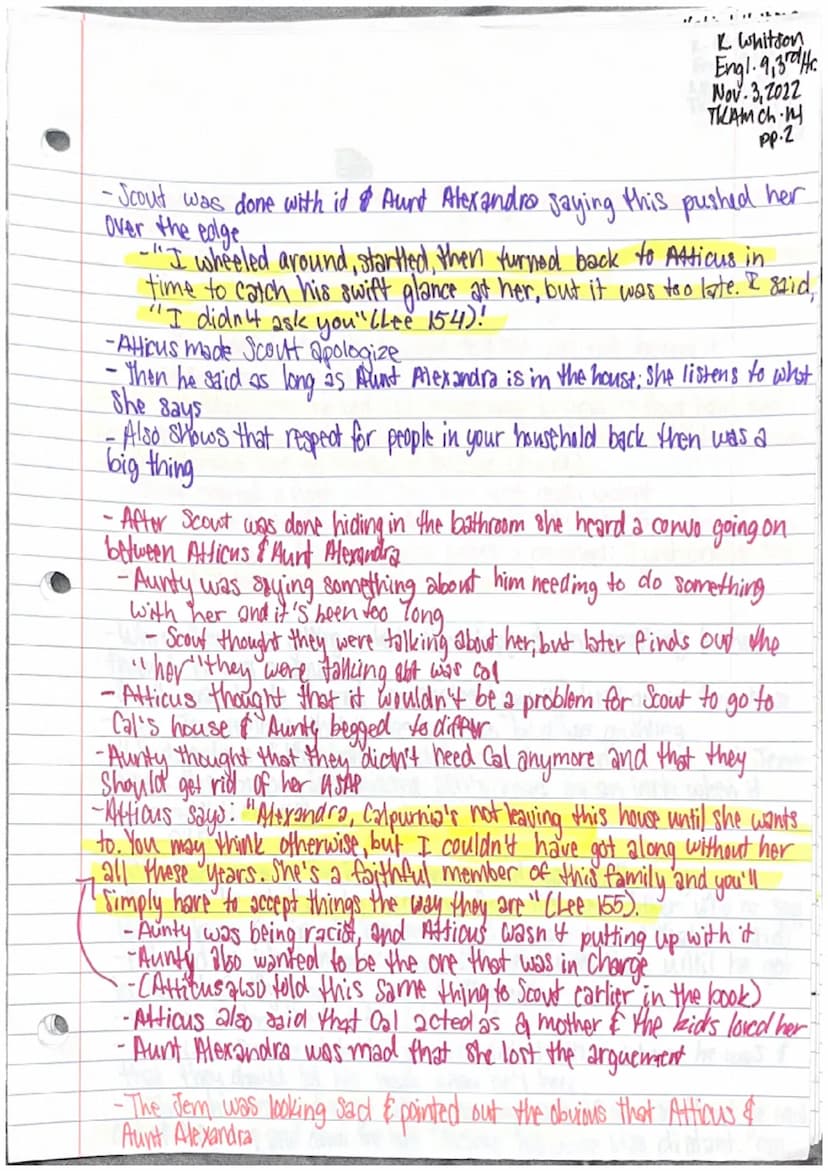 K. Whitson
Engl. 9, 3rd Hr.
Nov. 3, 2022
TKAM Ch. 14
pp. 2
- Scout was done with it & Aunt Alexandra saying this pushed her
over the edge
- "I wheeled around, startled, then turned back to Atticus in
time to catch his swift glance at her, but it was too late. I said,
"I didn't ask you" (Lee 154)!
- Atticus made Scout apologize
- Then he said as long as Aunt Alexandra is in the house; she listens to what
she says
- Also shows that respect for people in your household back then was a
big thing
- After Scout was done hiding in the bathroom she heard a convo going on
between Atticus & Aunt Alexandra
- Aunty was saying something about him needing to do something
with her and it's been too long
- Scout thought they were talking about her, but later finds out the
"her" they were talking abt was Cal
- Atticus thought that it wouldn't be a problem for Scout to go to
Cal's house & Aunty begged to differ
- Aunty thought that they didn't need Cal anymore and that they
should get rid of her ASAP
- Atticus says: "Alexandra, Calpurnia's not leaving this house until she wants
to. You may think otherwise, but I couldn't have got along without her
all these years. She's a faithful member of this family and you'll
simply have to accept things the way they are" (Lee 155).
- Aunty was being racist, and Atticus wasn't putting up with it
- Aunty also wanted to be the one that was in charge
- (Atticus also told this same thing to Scout earlier in the book)
- Atticus also said that Cal acted as a mother & the kids loved her
- Aunt Alexandra was mad that she lost the arguement
- The Jem was looking sad & pointed out the obvious that Atticus &
Aunt Alexandra